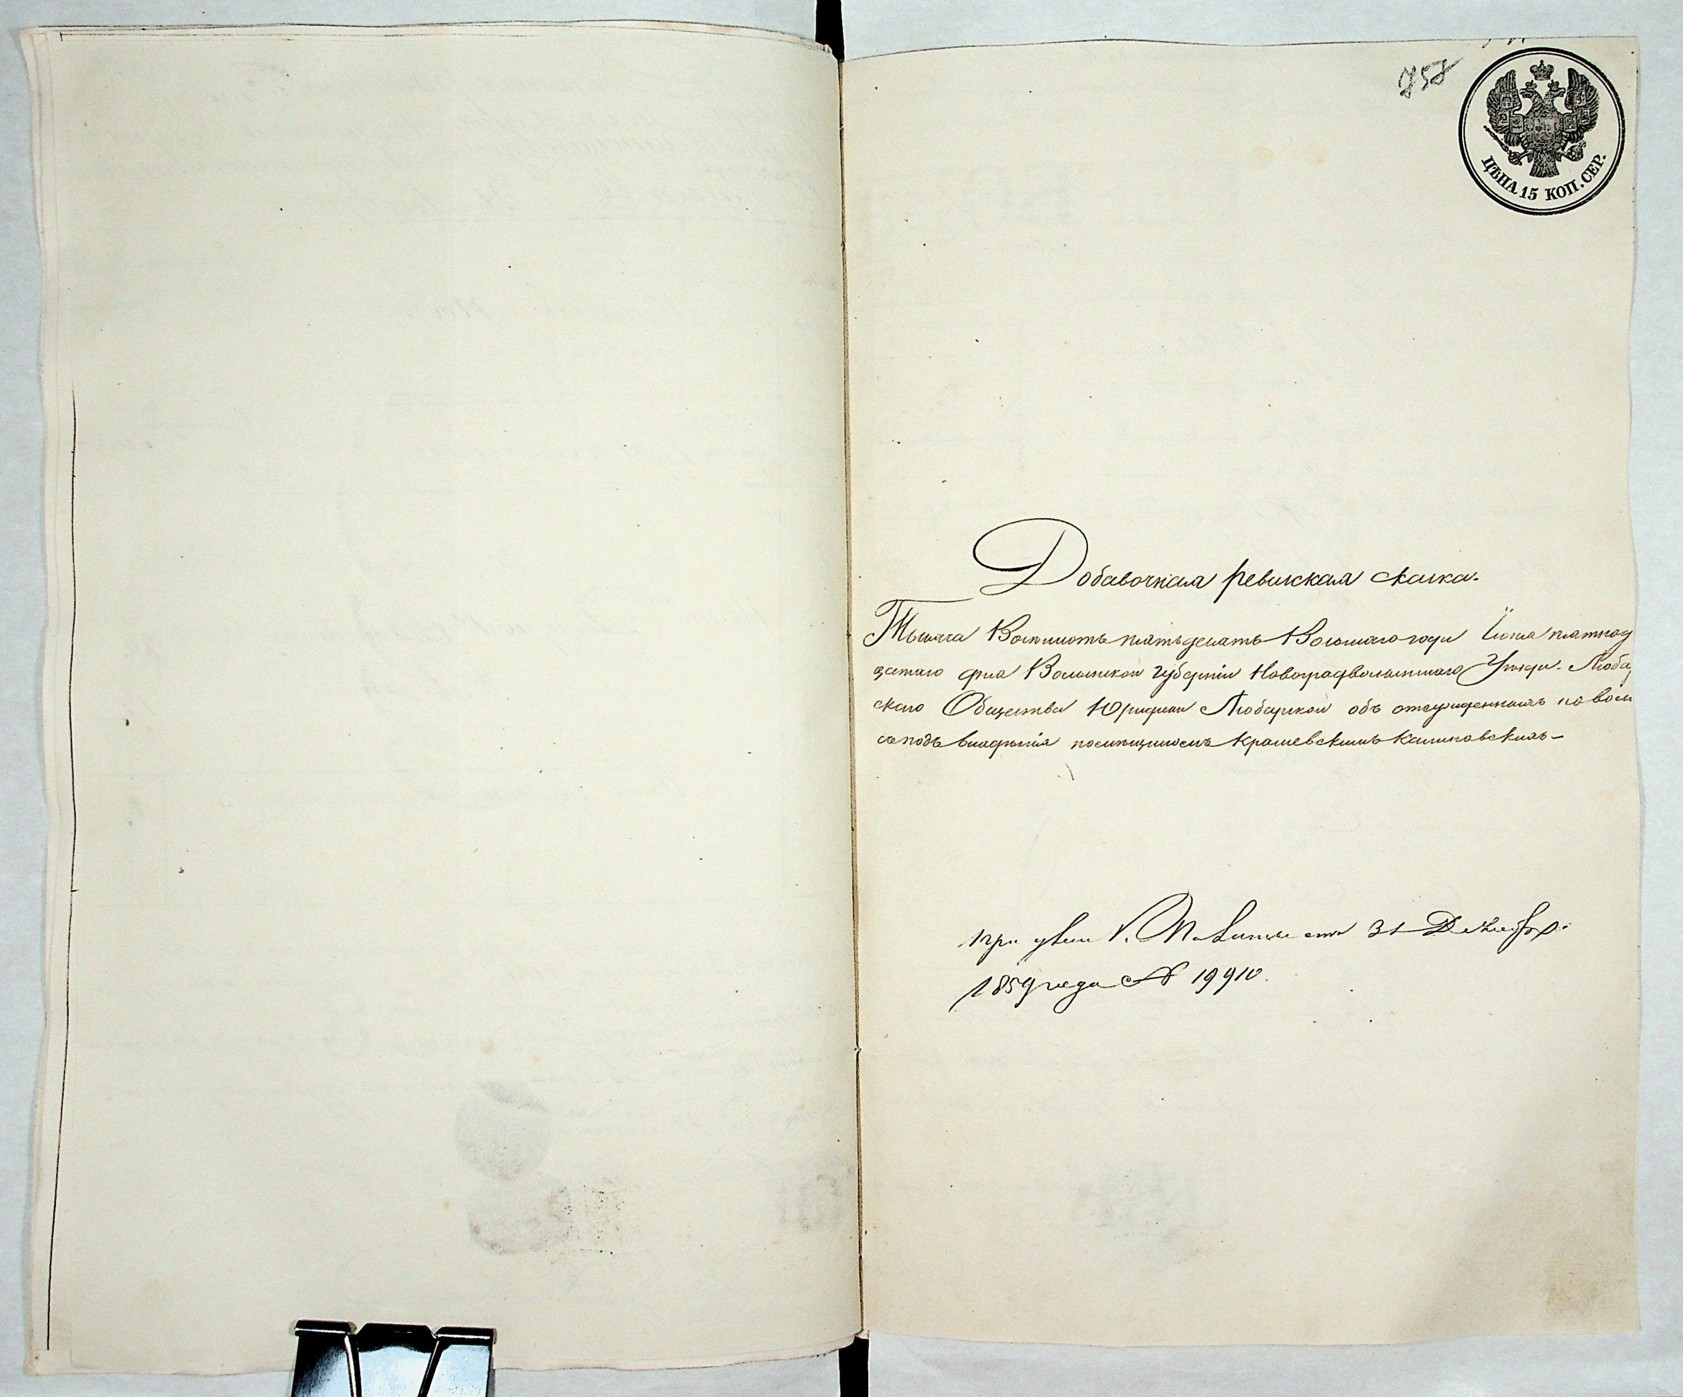 757
ЦѢНА 15 КОП. СЕР.
Добавочная ревизская сказка.
Тысяча Восемьсотъ пятьдесятъ Восьмаго года Іюня пятнад
цатаго дня Волынской губерніи Новоградволынскаго Уѣзда Любар
скаго Общества Юридики Любарской объ отсужденныхъ
изъ подъ владѣнія помѣщикомъ Крашевскимъ Калиновскимъ
при указѣ К. Палаты отъ 31 Декабр.
1859 года № 19910.